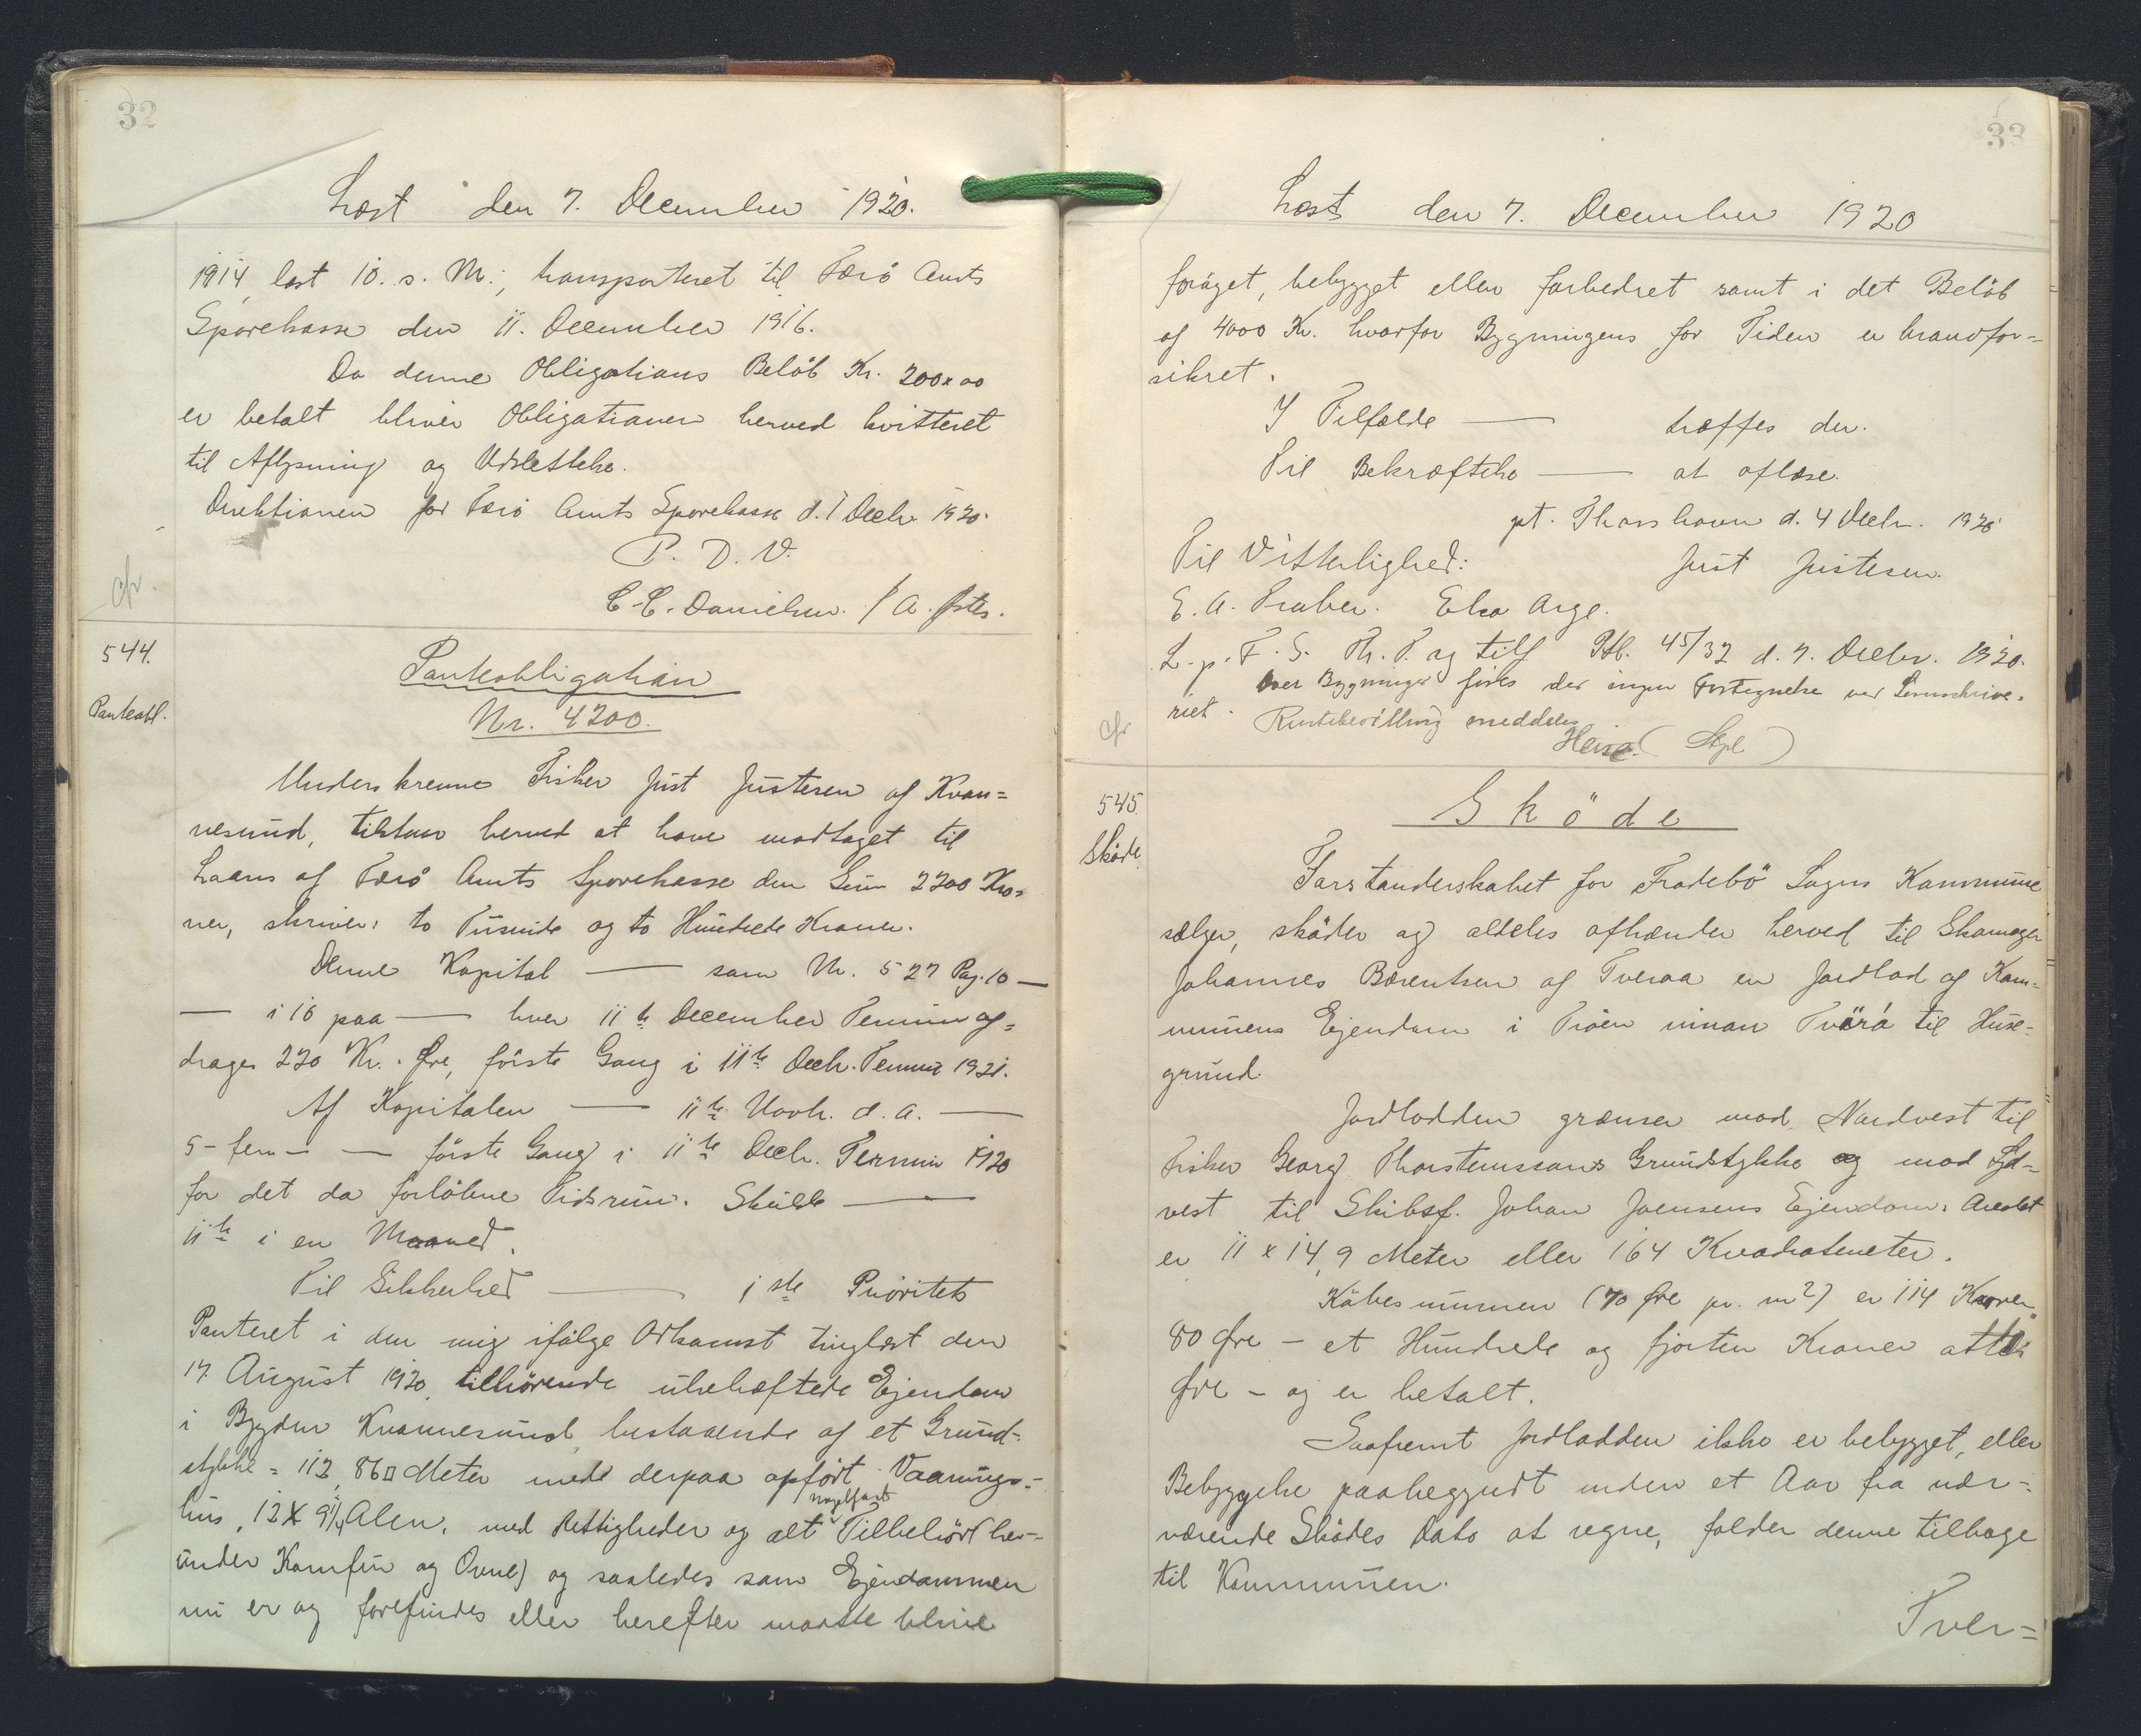 32
Læst den 7. December 1920.
1914, læst 10. s. M., transporteret til Færø Amts
Sparekasse den 11. December 1916.
Da denne Obligations Beløb Kr. 200 x 00
er betalt bliver Obligationen herved kvitteret
til Aflysning og Udslettelse.
Direktionen for Færø Amts Sparekasse d. 7 Decbr. 1920.
P. D. V.
C. C. Danielsen. / A.
cfr.
544.
Panteobl.
Panteobligation
Nr. 4200.
Underskrevne Fisker Just Justesen af Kvan=
nesund, tilstaar herved at have modtaget til
Laans af Færø Amts Sparekasse den Sum 2200 Kro=
ner, skriver: to Tusinde og to Hundrede Kroner.
Denne Kapital — som Nr. 527 Pag. 10 —
— i 10 paa — hver 11te December Termin af=
drages 220 Kr. Øre, første Gang i 11te Decbr. Termin 1921.
Af Kapitalen — 11te Novbr. d. A. —
5 - fem - — første Gang i 11te Decbr. Termin 1920
for det da forløbne Tidsrum. Skulde —
11te i en Maaned.
Til Sikkerhed — 1ste Prioritets
Panteret i den mig ifølge Adkomst tinglæst den
17. August 1920, tilhørende ubehæftede Ejendom
i Bygden Kvannesund, bestaaende af et Grund-
stykke = 112,86 □ Meter med derpaa opført Vaanings-
hus, 12 x 9 1/4 Alen, med Rettigheder og alt nagelfast Tilbehør (her-
under Komfur og Ovne) og saaledes som Ejendommen
nu er og forefindes eller herefter maatte blive
33
Læst den 7. December 1920
forøget, bebygget eller forbedret samt i det Beløb
af 4000 Kr. hvorfor Bygningens for Tiden er brandfor=
sikret.
I Tilfælde — træffes der.
Til Bekræftelse — at aflæse.
pt. Thorshavn d. 4 Decbr. 1920
Til Vitterlighed: Just Justesen.
E. A. Elsa Arge.
L. p. F. S. Th. T. og tilf Ptb. 45/32 d. 7. Decbr. 1920.
Over Bygninger føres der ingen Fortegnelse ved Sorenskrive=
riet. Rentebevilling meddeles
Heise. (Stpl)
cfr
545.
Skøde
Skøde
Forstanderskabet for Frodebø Sogns Kommune
sælger, skøder og aldeles afhænder herved til Skomager
Johannes Bærentsen af Tveraa en Jordlod af Kom=
munens Ejendom i Trøen innan Tvörá til Huse-
grund.
Jordlodden grænser mod Nordvest til
Fisker Georg Thorsteinssons Grundstykke og mod Syd-
vest til Skibsf. Johan Joensens Ejendom. Arealet
er 11 x 14,9 Meter eller 164 Kvadratmeter.
Købesummen (70 Øre pr. m²) er 114 Kroner
80 Øre - et Hundrede og fjorten Kroner otte
Øre - og er betalt.
Saafremt Jordlodden ikke er bebygget, eller
Bebyggelse paabegyndt inden et Aar fra nær-
værende Skødes Dato at regne, falder denne tilbage
til Kommunen.
Tver=